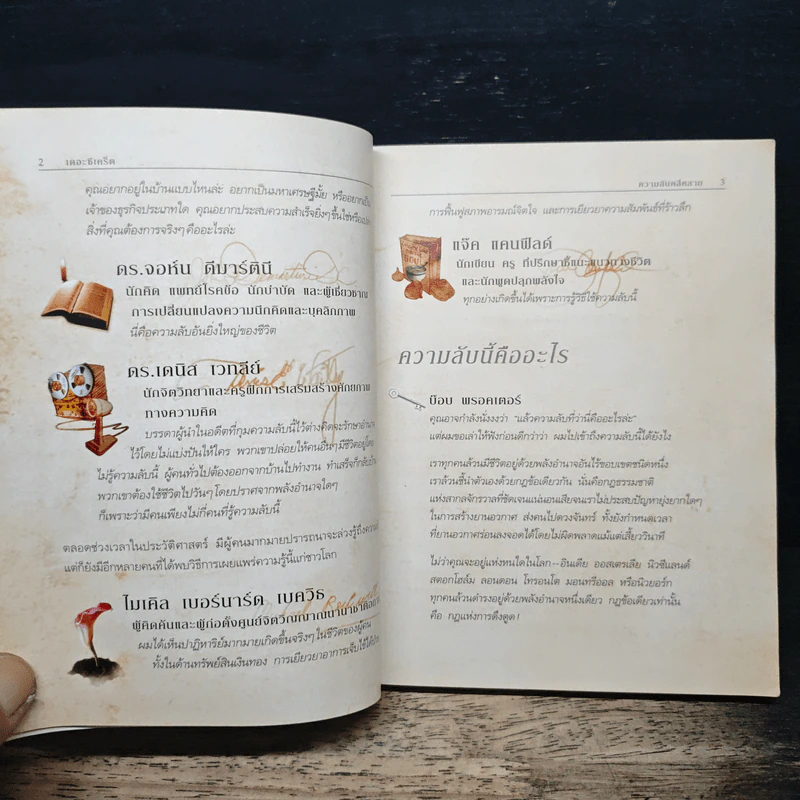 2 เดอะซีเคร็ต
คุณอยากอยู่ในบ้านแบบไหนล่ะ อยากเป็นมหาเศรษฐีมั้ย หรืออยากเป็น
เจ้าของธุรกิจประเภทใด คุณอยากประสบความสำเร็จยิ่งๆ ขึ้นใช่หรือเปล่า
สิ่งที่คุณต้องการจริงๆ คืออะไรล่ะ
ดร.จอห์น ดีมาร์ตินี
นักคิด แพทย์โรคข้อ นักบำบัด และผู้เชี่ยวชาญ
การเปลี่ยนแปลงความนึกคิดและบุคลิกภาพ
นี่คือความลับอันยิ่งใหญ่ของชีวิต
ดร.เดนิส เวทลีย์
นักจิตวิทยาและครูฝึกการเสริมสร้างศักยภาพ
ทางความคิด
บรรดาผู้นำในอดีตที่กุมความลับนี้ไว้ต่างคิดจะรักษาอำนาจ
ไว้โดยไม่แบ่งปันให้ใคร พวกเขาปล่อยให้คนอื่นๆ มีชีวิตอยู่โดย
ไม่รู้ความลับนี้ ผู้คนทั่วไปต้องออกจากบ้านไปทำงาน ทำเสร็จก็กลับบ้าน
พวกเขาต้องใช้ชีวิตไปวันๆ โดยปราศจากพลังอำนาจใดๆ
ก็เพราะว่ามีคนเพียงไม่กี่คนที่รู้ความลับนี้
ตลอดช่วงเวลาในประวัติศาสตร์ มีผู้คนมากมายปรารถนาจะล่วงรู้ถึงความ
แต่ก็ยังมีอีกหลายคนที่ได้พบวิธีการเผยแพร่ความรู้นี้แก่ชาวโลก
ไมเคิล เบอร์นาร์ด เบควิธ
ผู้คิดค้นและผู้ก่อตั้งศูนย์จิตวิญญาณนานาชาติ
ผมได้เห็นปาฏิหาริย์มากมายเกิดขึ้นจริงๆ ในชีวิตของผู้คน
ทั้งในด้านทรัพย์สินเงินทอง การเยียวยาอาการเจ็บไข้ได้
ความลับคลี่คลาย 3
การฟื้นฟูสภาพอารมณ์จิตใจ และการเยียวยาความสัมพันธ์ที่ร้าวลึก
แจ๊ค แคนฟิลด์
นักเขียน ครู ที่ปรึกษาชี้แนะแนวทางชีวิต
และนักพูดปลุกพลังใจ
ทุกอย่างเกิดขึ้นได้เพราะการรู้วิธีใช้ความลับนี้
ความลับนี้คืออะไร
บ๊อบ พรอคเตอร์
คุณอาจกำลังนั่งงงว่า “แล้วความลับที่ว่านี่คืออะไรล่ะ”
แต่ผมขอเล่าให้ฟังก่อนดีกว่าว่า ผมไปเข้าถึงความลับนี้ได้ยังไง
เราทุกคนล้วนมีชีวิตอยู่ด้วยพลังอำนาจอันไร้ขอบเขตชนิดหนึ่ง
เราล้วนชี้นำตัวเองด้วยกฎข้อเดียวกัน นั่นคือกฎธรรมชาติ
แห่งสากลจักรวาลที่ชัดเจนแน่นอนเสียจนเราไม่ประสบปัญหายุ่งยากใดๆ
ในการสร้างยานอวกาศ ส่งคนไปดวงจันทร์ ทั้งยังกำหนดเวลา
ที่ยานอวกาศร่อนลงจอดได้โดยไม่ผิดพลาดแม้แต่เสี้ยววินาที
ไม่ว่าคุณจะอยู่แห่งหนใดในโลก--อินเดีย ออสเตรเลีย นิวซีแลนด์
สตอกโฮล์ม ลอนดอน โทรอนโต มอนทรีออล หรือนิวยอร์ก
ทุกคนล้วนดำรงอยู่ด้วยพลังอำนาจหนึ่งเดียว กฎข้อเดียวเท่านั้น
คือ กฎแห่งการดึงดูด !